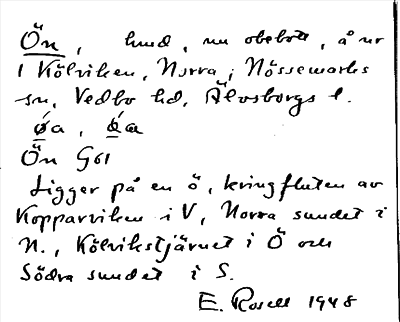 Ön, hmd, nu obebott, å nr
1 Kölviken, Norra, Nössemarks
sn, Vedbo hd, Älvsborgs l.
øa, øa
Ön G61
Ligger på en ö, kringfluten av
Kopparviken i V, Norra sundet i
N., Kölvikstjärnet i Ö och
Södra sundet i S.
E. Rosell 1948